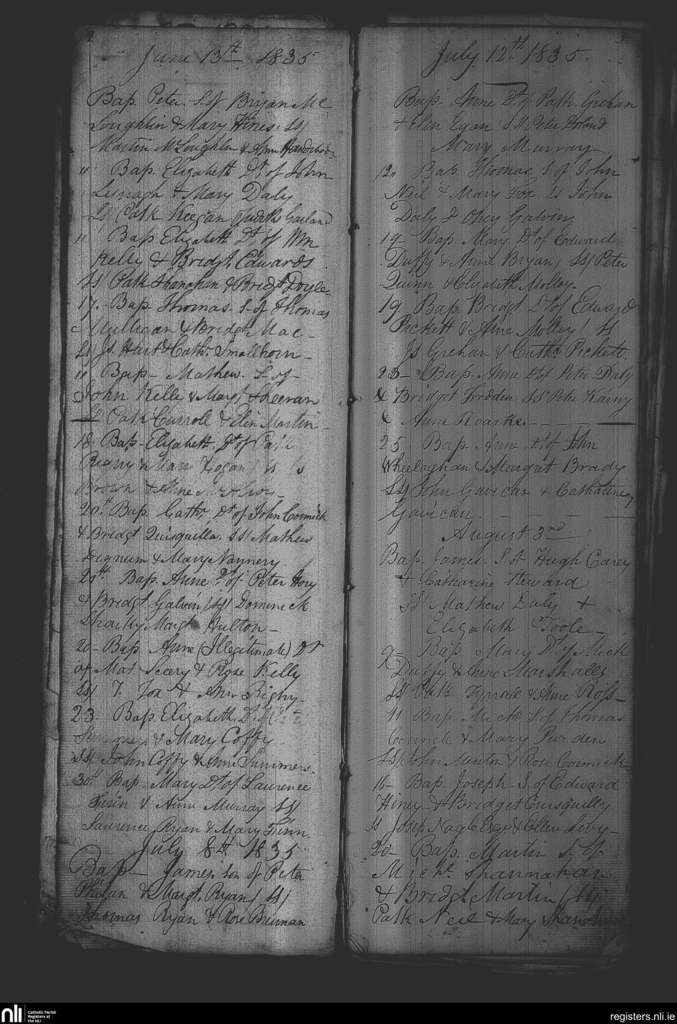 June 13th 1835
Bap. Peter S. of Bryan Mc
Loughlin & Mary Hines SS
Martin McLoughlin & Ann
" Bap. Elizabeth Dt. of John
Lynagh & Mary Daly
SS Patk Keegan Judith Garland
11 Bap. Elizabeth Dt. of Wm
Kelly & Bridgt. Edwards
SS Patk Shanahan & Bridgt Doyle
17. Bap. Thomas S. of Thomas
Mulligan & Bridgt Mac-
SS Js. Hart & Cath. Smallhorn
11 Bap. Mathew S. of
John Kelly & Margt Sheeran
SS Patk Carroll & Elen Martin
18. Bap. Elizabeth Dt. of Patk
Brown & Anne
20th Bap. Cathe Dt of John Cormick
& Bridgt Quisquilla. SS Mathew
Dignum & Mary Nannery
20th. Bap. Anne Dt of Peter Hory
& Bridgt Galvin SS Dominick
Margt Hulton
20- Bap. Anne (Illegitimate) Dt
of Mat Seary & Rose Kelly
SS T. Fox & Ann
23. Bap. Elizabeth Dt of
& Mary Coffy
SS John Coffy & Ann Summers.
30th Bap. Mary Dt of Laurence
& Anne Murray SS
Laurence Ryan & Mary
July 8th 1835
Bap- James son of Peter
Phelan & Margt. Ryan SS
Thomas Ryan & Rose Brennan
July 12th 1835
Bap. Anne Dt of Patk Grehan
& Elen Egan SS Peter Boland
Mary Murray
12. Bap. Thomas S. of John
Neil & Mary Fox SS John
Daly & Obey Galvin
19- Bap. Mary Dt of Edward
Duffy & Anne Bryan SS Peter
Quinn & Elizabeth Molloy.
19 Bap. Bridgt Dt of Edward
Pickett & Anne Molloy SS
Js Grehan & Cathe Pickett
23- Bap. Anne Dt of Peter Daly
& Bridget SS Peter Kearny
& Anne Roarke
25. Bap. Ann Dt of John
Wheelaghan & Margat Brady
SS John Gavican & Catharine
Gavican
August 3rd
Bap. James S. of Hugh Carey
& Catharine Steward
SS Mathew Daly &
Elizabeth Toole
9- Bap. Mary Dt of Mick
Duffy & Anne Marshall
SS Patk Tyrrole & Anne Ross
11 Bap. Mick S. of Thomas
Cormick & Mary Purden
SS John Austin & Rose Cormick
16- Bap. Joseph S. of Edward
Hiney & Bridget Cusquilly
SS Josep Nagle Esqr & Ellen
20- Bap. Martin S. of
Michl. Shannahan
& Bridgt Martin SS
Patk Neil & Mary
nli
Catholic Parish
Registers at
the NLI
registers.nli.ie